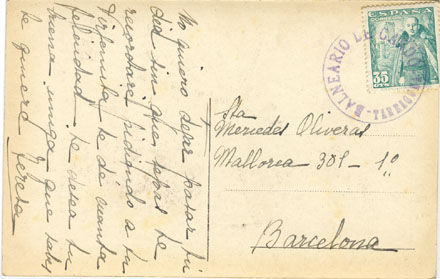 No quiero dejar pasar tu
dia sin que sepas te
recordaré pidiendo a tu
Virgencita te dé cuanta
felicidad te desea tu
buena amiga que tanto
te quiere Tereta
Sta
Mercedes Oliveras
Mallorca 301-1º
Barcelona
BALNEARIO DE
TARRAGONA
ESPAÑA
35